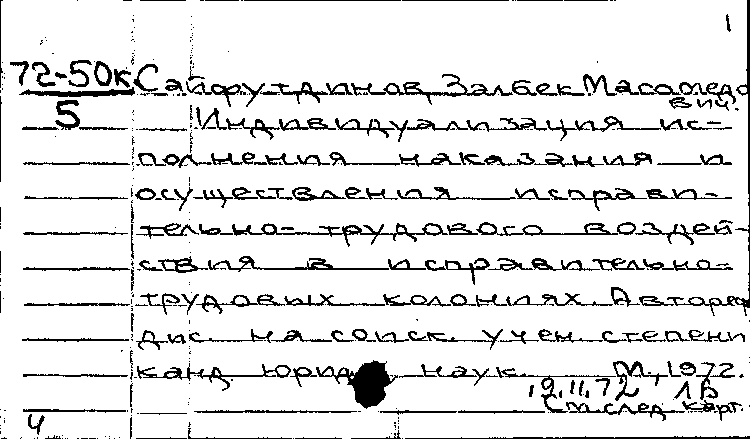 1
72-50к Сайфутдинов, Залбек Масомедо
5 вич.
Индивидуализация ис-
полнения наказания и
осуществления исправи-
тельно-трудового воздей-
ствия в исправительно-
трудовых колониях. Автореф
дис. на соиск. учен. степени
канд. юрид. наук. М., 1972.
19.11.72 1Б
См. след. карт.
4